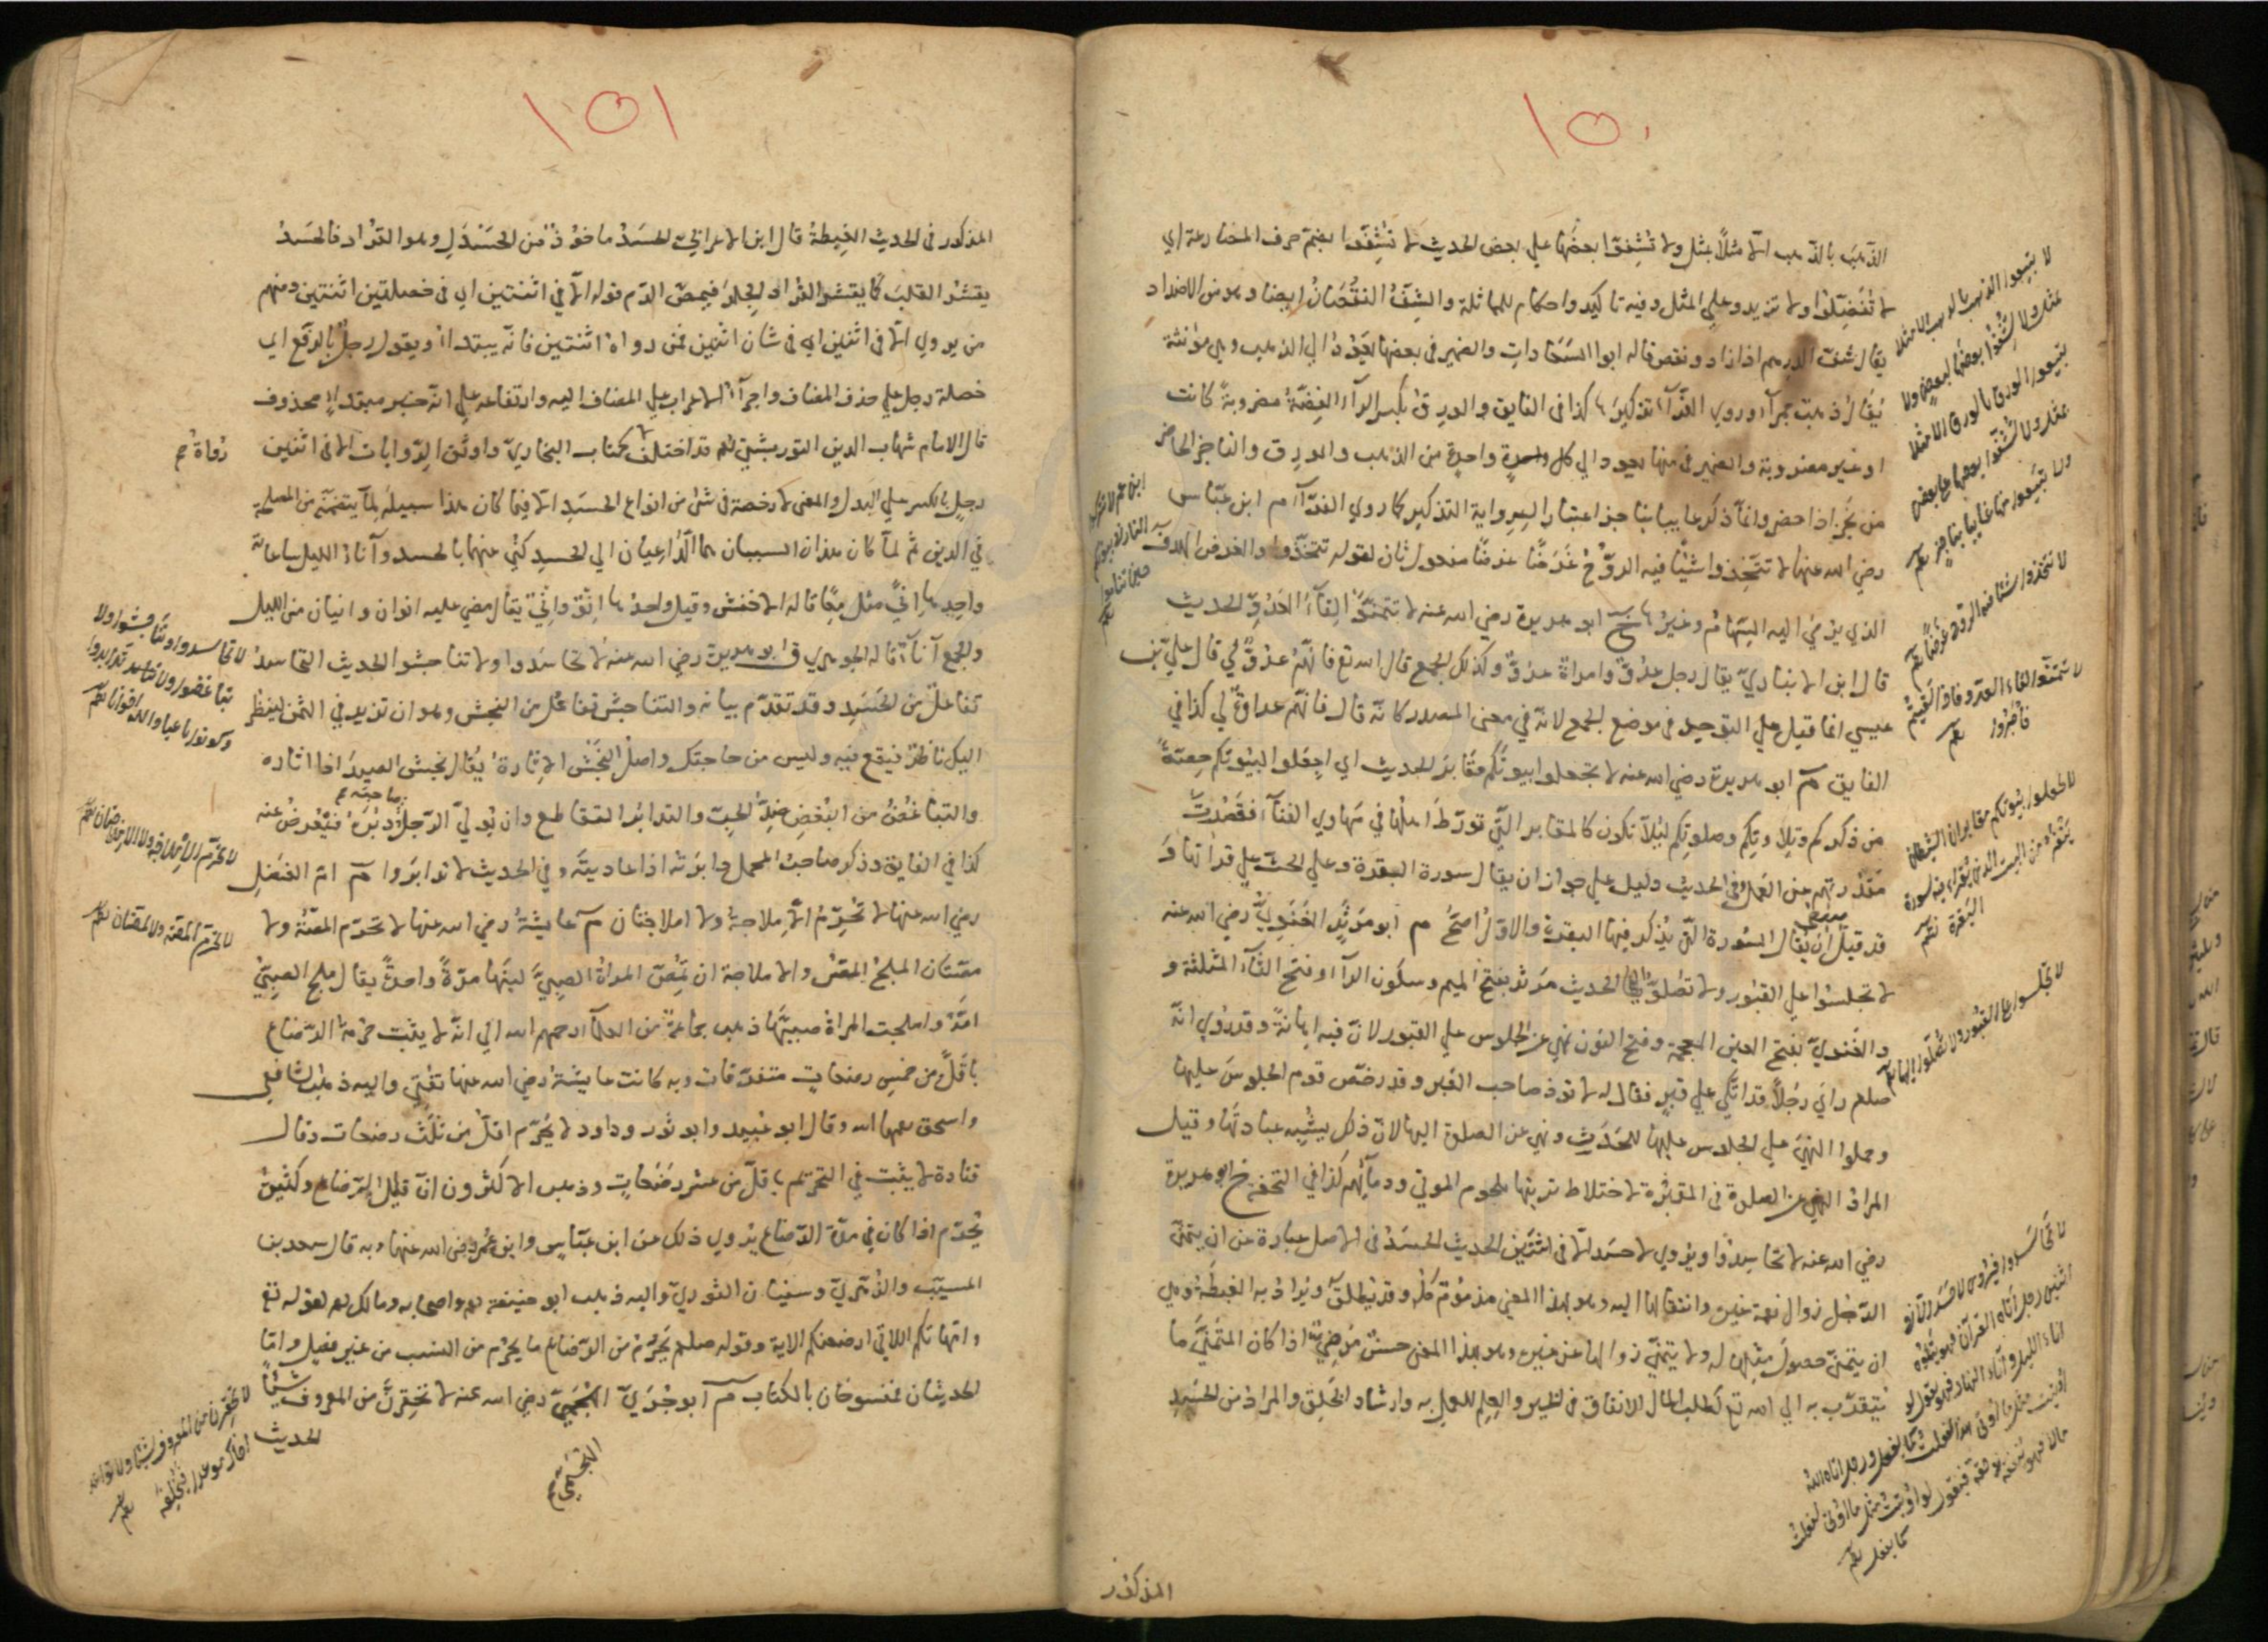 ١٥٠
الذهب بالذهب الا مثلاً بمثل ولا تشفوا بعضها علي بعض الحديث لا تشفوا بضم حرف المضارعة اي
لا تفضلوا ولا تزيدوا علي المثل وفيه تاكيد واحكام للماثلة والشف النقصان ايضا وهو من الاضداد
يقال شف الدرهم اذا زاد ونقص قاله ابوا السعادات والضمير في بعضها يعود الي الذهب وهي مؤنثة
يقال ذهب حمرآء وروي الفرآء تذكيرها كذا في الفايق والورق بكسر الرآء الفضة مضروبة كانت
او غير مضروبة والضمير في منها يعود الي كل واحدة واحدة من الذهب والورق والناجز الحاضر
من نجز اذا حضر وانمآ ذكر غايبا بناجز اعتبارا لرواية التذكير كما روي الفرآء م ابن عباس
رضي الله عنهما لا تتخذوا شيئا فيه الروح غرضا غرضا مفعول ثان لقوله تتخذوا والغرض الهدف
الذي يرمي اليه السهام وغيرها خ ابو هريرة رضي الله عنه لا تتمنوا لقآء العدو الحديث
قال ابن الانباري يقال رجل عدو وامراة عدو وكذلك الجمع قال الله تع فانهم عدو لي قال علي بن
عيسي انما قيل علي التوحيد في موضع الجمع لانه في معني المصدر كانه قال فانهم عداوة لي كذا في
الفايق م ابو هريرة رضي الله عنه لا تجعلوا بيوتكم مقابر الحديث اي اجعلوا لبيوتكم حصة
من ذكركم وتلاوتكم وصلوتكم ليلا تكون كالمقابر التي تورط اهلها في مهاوي الفنآء فقصرت
مقدرتهم عن العمل وفي الحديث دليل علي جواز ان يقال سورة البقرة وعلي الحث علي قراتها و
قد قيل ان يقال السورة التي يذكر فيها البقرة والاول اصح م ابو مرثد الغنوي رضي الله عنه
لا تجلسوا علي القبور ولا تصلوا اليها الحديث مرثد بفتح الميم وسكون الرآء وفتح الثآء المثلثة و
والغنوي بفتح الغين المعجمة وفتح النون نهي عن الجلوس علي القبور لان فيه اهانة وقد روي انه
صلعم راي رجلا قد اتكي علي قبر فقال له لا توذ صاحب القبر وقد رخص قوم الجلوس عليها
وحملوا النهي علي الجلوس عليها للحدث ونهي عن الصلوة اليها لان ذلك يشبه عبادتها وقيل
المراد النهي عن الصلوة في المقبرة لاختلاط تربتها بلحوم الموتي ودمآئهم كذا في التحفه خ ابو هريرة
رضي الله عنه لا تحاسدوا ويروي لا حسد الا في اثنتين الحديث الحسد في الاصل عبارة عن ان يتمني
الرجل زوال نعمة غيره وانتقالها اليه وهو بهذا المعني مذموم كله وقد يطلق ويراد به الغبطة وهي
ان يتمني حصول مثلها له ولا يتمني زوالها عن غيره وهو بهذا المعني حسن مرضي اذا كان المتمني ما
يتقرب به الي الله تع كطلب المال للانفاق في الخير والعلم للعمل به وارشاد الخلق والمراد من الحسد
المذكور
لا تبيعوا الذهب بالذهب الا مثلا
بمثل ولا تشفوا بعضها لبعض ولا
تبيعوا الورق بالورق الا مثلا
بمثل ولا تشفوا بعضها علي بعض
ولا تبيعوا منها غايبا بناجز
لا تتخذوا شيئا فيه الروح غرضا
لا تتمنوا لقاء العدو فاذا لقيتم
فاصبروا
لا تجعلوا بيوتكم مقابر ان الشيطان
ينفر من البيت الذي يقرا فيه سورة
البقرة
لا تجلسوا علي القبور ولا تصلوا اليها
اثنين رجل اتاه القرآن فهو يتلوه
اناء الليل وآناء النهار فهو يقول لو
اوتيت مثل ما اوتي هذا لفعلت كما يفعل ورجل اتاه الله
مالا فهو ينفقه في حقه فيقول لو اوتيت مثل ما اوتي لفعلت
كما يفعل
١٥١
المذكور في الحديث الغبطة قال ابن الاعرابي الحسد ماخوذ من الحسدل وهو القراد فالحسد
يقشر القلب كما يقشر القراد الجلد فيمص الدم قوله الا في اثنتين اي في خصلتين اثنتين ومنهم
من يروي الا في اثنين اي في شان اثنين فمن رواه اثنتين فانه يبتدا ويقول رجل بالرفع اي
خصلة رجل علي حذف المضاف واجرآء الاعراب علي المضاف اليه وارتفاعه علي انه خبر مبتدا محذوف
قال الامام شهاب الدين التوربشتي قد اختلف كتاب البخاري واوثق الروايات الا في اثنين
رجل بالكسر علي البدل والمعني لا رخصة في شئ من انواع الحسد الا فيما كان هذا سبيله لما يتضمنه من المصلحة
في الدين ثم لما كان هذان السببان هما الداعيان الي الحسد كني عنهما بالحسد وآناء الليل ساعاته
واحدها اني مثل معا قاله الاخفش وقيل واحدها انو واني يقال مضي عليه انوان وانيان من الليل
والجمع آناء قاله الجوهري ق ابو هريرة رضي الله عنه لا تحاسدوا ولا تناجشوا الحديث التحاسد
تفاعل من الحسد وقد تقدم بيانه والتناجش تفاعل من النجش وهو ان تزيد في الثمن لينظر
اليك ناظر فيقع فيه وليس من حاجتك واصل النجش الاثارة يقال نجش الصيد اذا اثاره
والتباغض من البغض ضد الحب والتدابر التقاطع وان يولي الرجل صاحبه دبره فيعرض عنه
كذا في الفايق وذكر صاحب المجمل دابرته اذا عاديته وفي الحديث لا تدابروا م ام الفضل
رضي الله عنها لا تحرم الاملاجة ولا املاجتان م عايشة رضي الله عنها لا تحرم المصة ولا
مصتان الملج المص والاملاجة ان تمص المراة الصبي لبنها مرة واحدة يقال ملج الصبي
امه واملجت المراة صبيها ذهب جماعة من العلمآء رحمهم الله الي انه لا يثبت حرمة الرضاع
باقل من خمس رضعات متفرقات وبه كانت عايشة رضي الله عنها تفتي واليه ذهب الشافعي
واسحق رحمهما الله وقال ابو عبيد وابو ثور وداود لا يحرم اقل من ثلث رضعات وقال
قتادة لا يثبت في التحريم باقل من عشر رضعات وذهب الاكثرون ان قليل الرضاع وكثيره
يحرم اذا كان في مدة الرضاع يروي ذلك عن ابن عباس وابن عمر رضي الله عنهما وبه قال سعد بن
المسيب والزهري وسفيان الثوري واليه ذهب ابو حنيفة واصحابه ومالك لقوله تع
وامهاتكم اللاتي ارضعنكم الاية وقوله صلعم يحرم من الرضاع ما يحرم من النسب من غير فصل واما
الحديثان فمنسوخان بالكتاب م ابو جري الهجيمي رضي الله عنه لا تحقرن من المعروف شيئا
الحديث
رواة
لا تحاسدوا ولا تناجشوا ولا
تباغضوا ولا تدابروا
وكونوا عباد الله اخوانا
لا تحرم الاملاجة ولا الاملاجتان
لا تحرم المصة ولا المصتان
لا تحقرن من المعروف شيئا ولا تواعد
اخاك موعدا فتخلفه